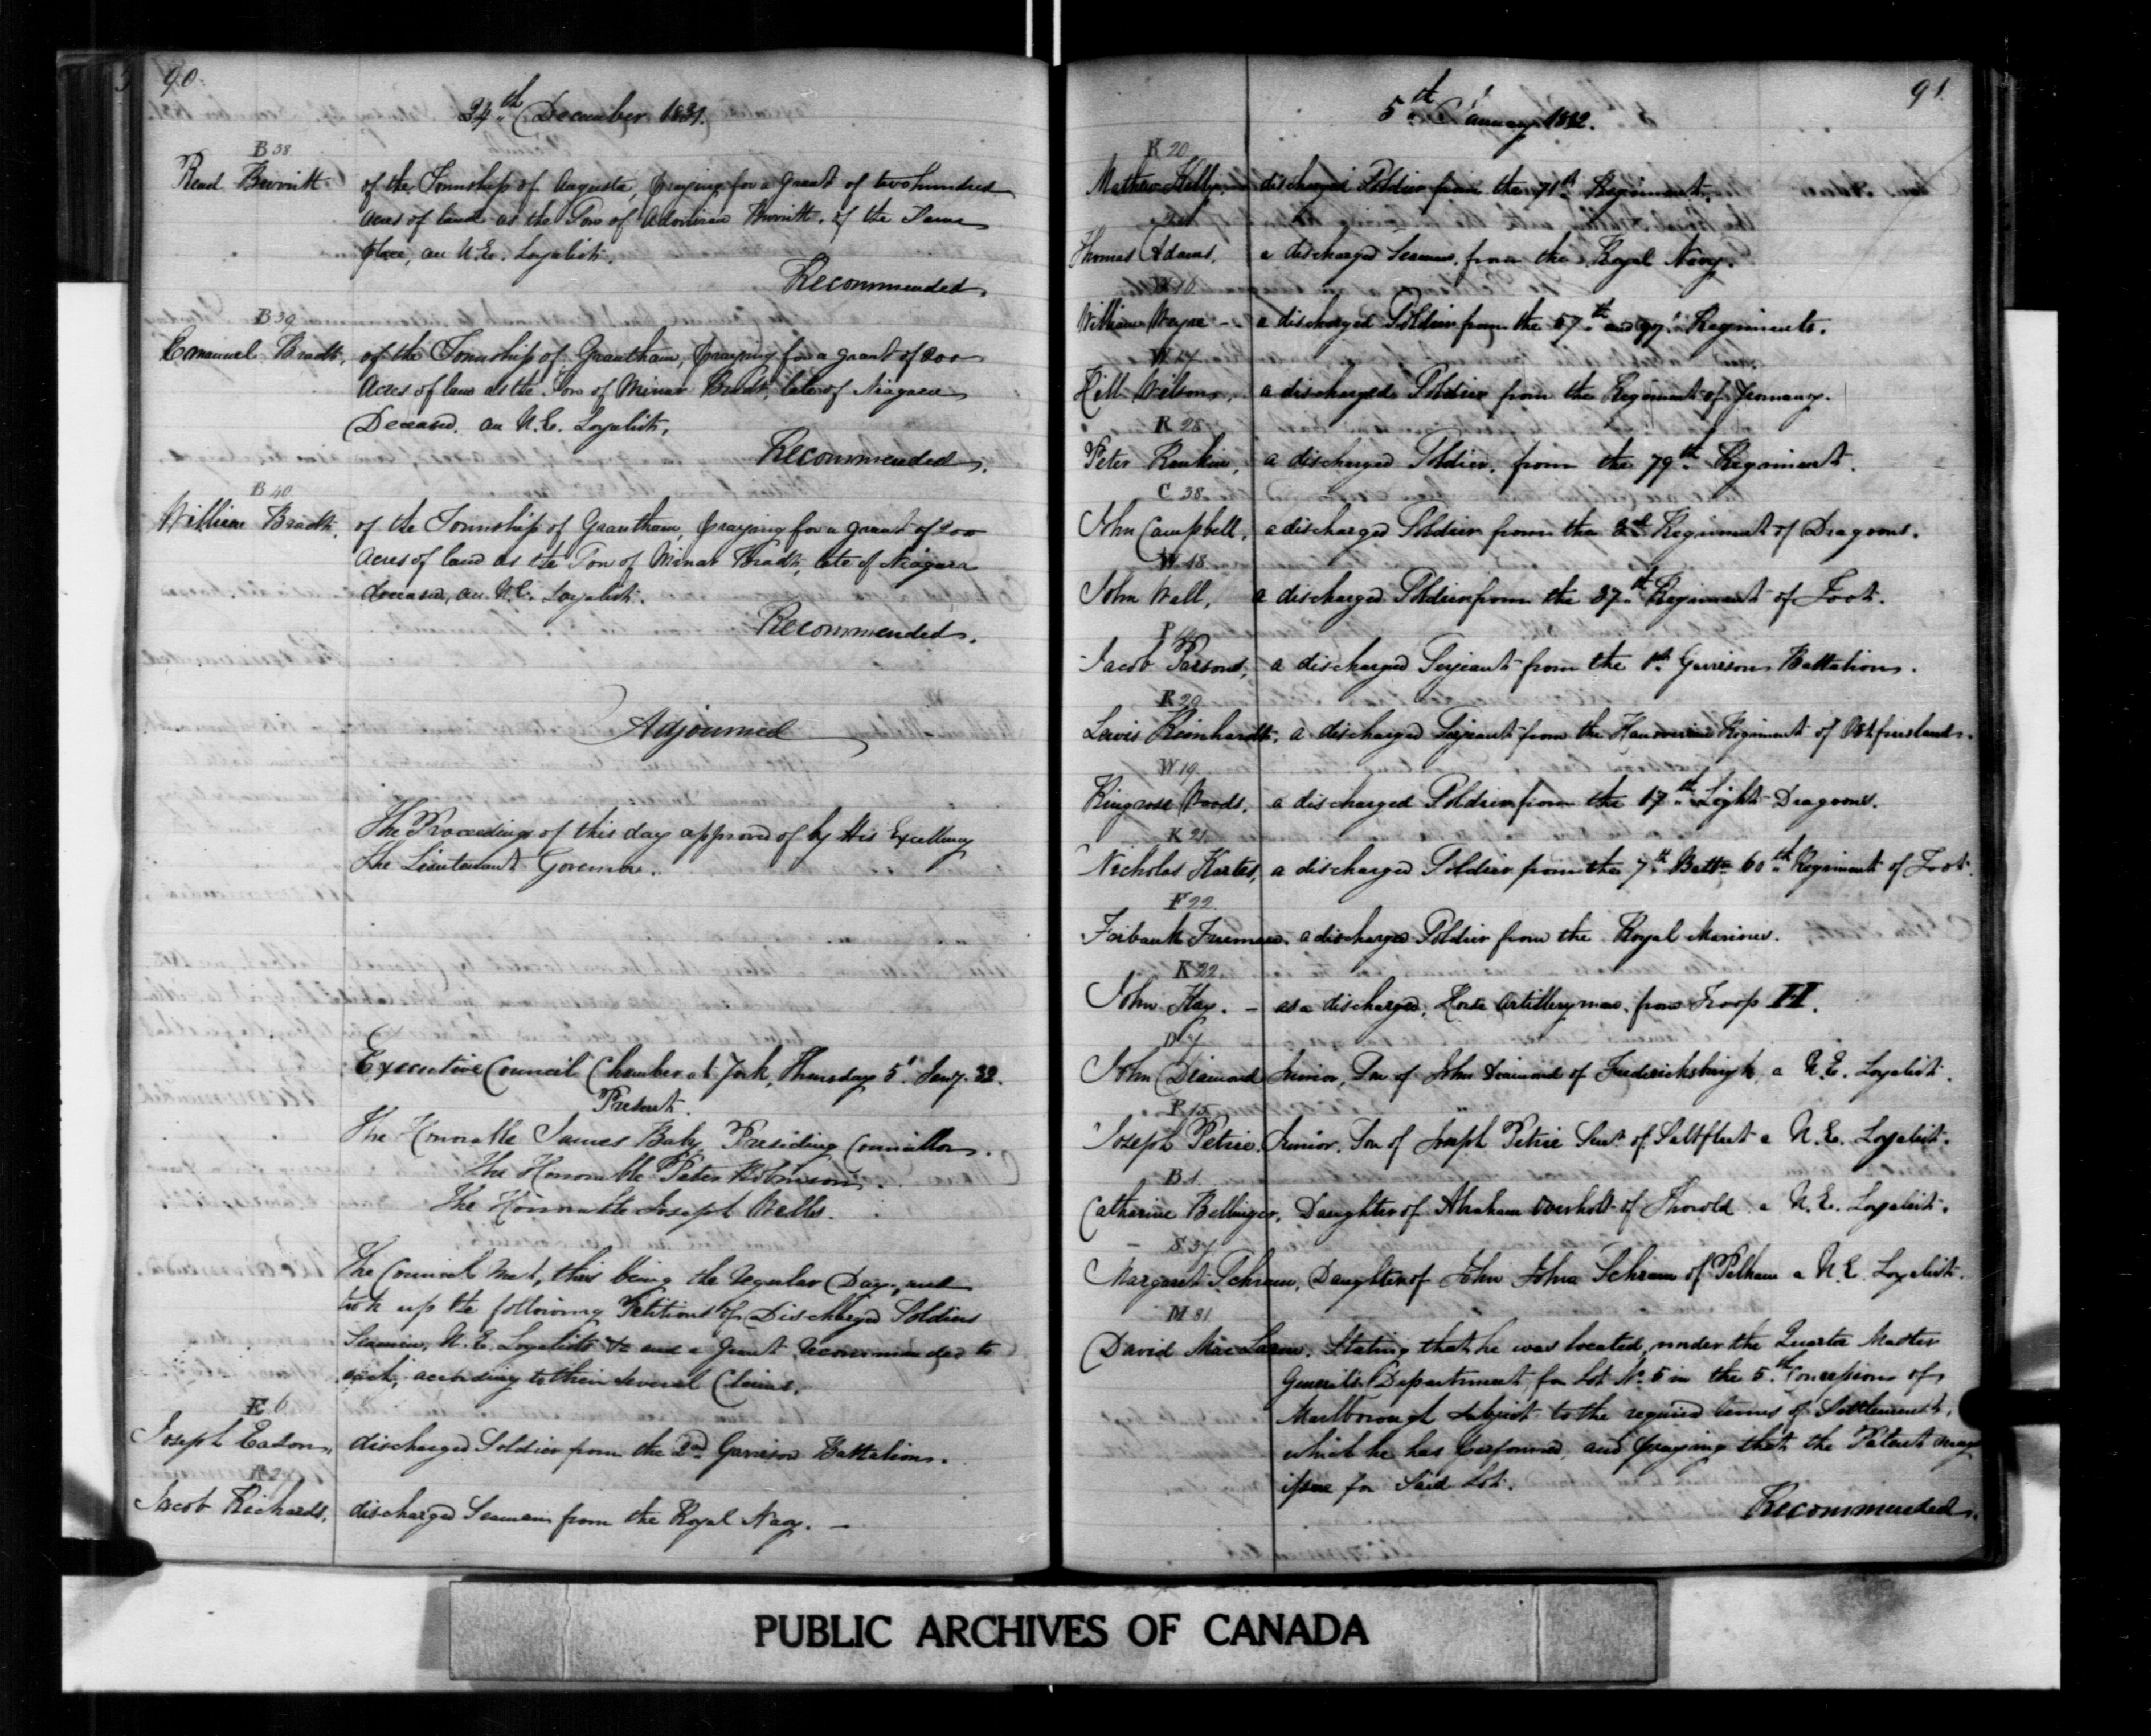 90.
24th December 1831.
B 38
Read Burritt
of the Township of Augusta, praying for a grant of two hundred
acres of land as the Son of Adoniram Burritt, of the Same
place, an U.E. Loyalist.
Recommended.
B 39
Emanuel Bradt,
of the Township of Grantham, praying for a grant of 200
Acres of land as the Son of Minar Bradt, late of Niagara
Deceased, an U.E. Loyalist,
Recommended.
B 40
William Bradt,
of the Township of Grantham, praying for a grant of 200
Acres of land as the Son of Minar Bradt, late of Niagara
deceased, an U.E. Loyalist.
Recommended.
Adjourned
The Proceedings of this day approved of by His Excellency
the Lieutenant Governor.
Executive Council Chamber at York, Thursday 5t. Jany. 32.
Present.
The Honorable James Baby Presiding Councillor.
The Honorable Peter Robinson.
The Honorable Joseph Wells.
The Council Met, this being the regular Day, and
took up the following Petitions of Discharged Soldiers
Seamen, U.E. Loyalists &c and a Grant recommended to
each, according to their several Claims.
E 6
Joseph Eason,
discharged Soldier from the 2nd Garrison Battalion.
Jacob Richards,
discharged Seaman from the Royal Navy. —
91
5th January 1832.
K 20
Mathew Kelly, discharged Soldier from the 71st Regiment.
Thomas Adams, a discharged Seaman, from the Royal Navy.
William Wayne - a discharged Soldier from the 57th and 97t. Regiments.
W 17
Hill Wilson, a discharged Soldier from the Regiment of Yeomanry.
R 28
Peter Rankin, a discharged Soldier, from the 79th Regiment.
C 38
John Campbell, a discharged Soldier from the 2d Regiment of Dragoons.
W 18
John Wall, a discharged Soldier from the 37th Regiment of Foot.
Jacob Parsons, a discharged Serjeant from the 1st Garrison Battalion.
R 29
Lewis Reinhardt, a discharged Serjeant from the Hanoverian Regiment of Ostfriesland.
W 19
Kingrose Woods, a discharged Soldier from the 17th Light Dragoons.
K 21
Nicholas Karter, a discharged Soldier from the 7th Battn 60th Regiment of Foot.
F 22
Fairbank Freeman, a discharged Soldier from the Royal Marines.
K 22
John Kay. - as a discharged Horse Artilleryman from Troop H.
D 7
John Diamond Junior, Son of John Diamond of Fredericksburgh, a U.E. Loyalist.
P 15
Joseph Petrie Junior, Son of Joseph Petrie Senr of Saltfleet a U.E. Loyalist.
B 1
Catharine Bellinger, Daughter of Abraham Overholt of Thorold a U.E. Loyalist.
S 37
Margaret Schram, Daughter of John John Schram of Pelham a U.E. Loyalist.
M 31
David MacLaren, Stating that he was located, under the Quarter Master
General's Department, for Lot No. 5 in the 5th Concession of
Marlborough subject to the required terms of Settlement,
which he has performed, and praying that the Patent may
issue for Said Lot.
Recommended.
PUBLIC ARCHIVES OF CANADA